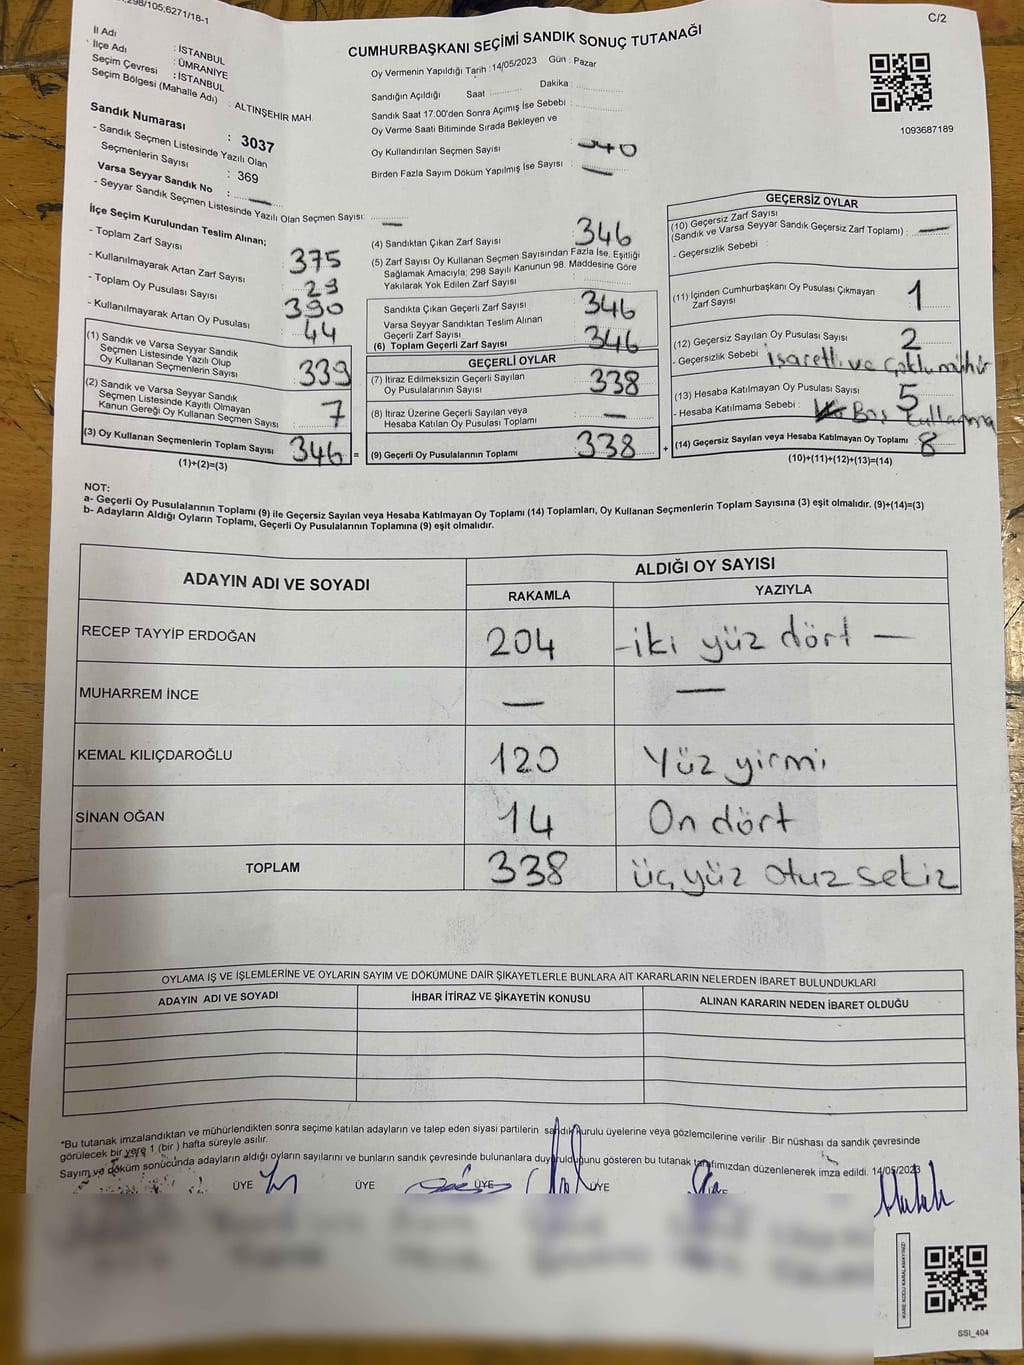 298/105,6271/18-1
C/2
CUMHURBAŞKANI SEÇİMİ SANDIK SONUÇ TUTANAĞI
İl Adı : İSTANBUL
İlçe Adı : ÜMRANİYE
Seçim Çevresi : İSTANBUL
Seçim Bölgesi (Mahalle Adı) : ALTINŞEHİR MAH
Sandık Numarası : 3037
- Sandık Seçmen Listesinde Yazılı Olan
Seçmenlerin Sayısı : 369
Varsa Seyyar Sandık No : —
- Seyyar Sandık Seçmen Listesinde Yazılı Olan Seçmen Sayısı: —
Oy Vermenin Yapıldığı Tarih : 14/05/2023 Gün : Pazar
Sandığın Açıldığı Saat : Dakika :
Sandık Saat 17:00'den Sonra Açımış İse Sebebi :
Oy Verme Saati Bitiminde Sırada Bekleyen ve
Oy Kullandırılan Seçmen Sayısı :
Birden Fazla Sayım Döküm Yapılmış İse Sayısı : —
1093687189
İlçe Seçim Kurulundan Teslim Alınan;
- Toplam Zarf Sayısı : 375
- Kullanılmayarak Artan Zarf Sayısı : 29
- Toplam Oy Pusulası Sayısı : 390
- Kullanılmayarak Artan Oy Pusulası : 44
(1) Sandık ve Varsa Seyyar Sandık
Seçmen Listesinde Yazılı Olup
Oy Kullanan Seçmenlerin Sayısı : 339
(2) Sandık ve Varsa Seyyar Sandık
Seçmen Listesinde Kayıtlı Olmayan
Kanun Gereği Oy Kullanan Seçmen Sayısı : 7
(3) Oy Kullanan Seçmenlerin Toplam Sayısı : 346 =
(1)+(2)=(3)
(4) Sandıktan Çıkan Zarf Sayısı : 346
(5) Zarf Sayısı Oy Kullanan Seçmen Sayısından Fazla İse, Eşitliği
Sağlamak Amacıyla, 298 Sayılı Kanunun 98. Maddesine Göre
Yakılarak Yok Edilen Zarf Sayısı :
Sandıkta Çıkan Geçerli Zarf Sayısı : 346
Varsa Seyyar Sandıktan Teslim Alınan
Geçerli Zarf Sayısı :
(6) Toplam Geçerli Zarf Sayısı : 346
GEÇERLİ OYLAR
(7) İtiraz Edilmeksizin Geçerli Sayılan
Oy Pusulalarının Sayısı : 338
(8) İtiraz Üzerine Geçerli Sayılan veya
Hesaba Katılan Oy Pusulası Toplamı : —
(9) Geçerli Oy Pusulalarının Toplamı : 338 +
GEÇERSİZ OYLAR
(10) Geçersiz Zarf Sayısı
(Sandık ve Varsa Seyyar Sandık Geçersiz Zarf Toplamı) : —
- Geçersizlik Sebebi :
(11) İçinden Cumhurbaşkanı Oy Pusulası Çıkmayan
Zarf Sayısı : 1
(12) Geçersiz Sayılan Oy Pusulası Sayısı : 2
- Geçersizlik Sebebi : işaretli ve Çoklu mühür
(13) Hesaba Katılmayan Oy Pusulası Sayısı : 5
- Hesaba Katılmama Sebebi : Boş kullanma
(14) Geçersiz Sayılan veya Hesaba Katılmayan Oy Toplamı : 8
(10)+(11)+(12)+(13)=(14)
NOT:
a- Geçerli Oy Pusulalarının Toplamı (9) ile Geçersiz Sayılan veya Hesaba Katılmayan Oy Toplamı (14) Toplamları, Oy Kullanan Seçmenlerin Toplam Sayısına (3) eşit olmalıdır. (9)+(14)=(3)
b- Adayların Aldığı Oyların Toplamı, Geçerli Oy Pusulalarının Toplamına (9) eşit olmalıdır.
ADAYIN ADI VE SOYADI ALDIĞI OY SAYISI
RAKAMLA YAZIYLA
RECEP TAYYİP ERDOĞAN 204 -iki yüz dört —
MUHARREM İNCE — —
KEMAL KILIÇDAROĞLU 120 Yüz yirmi
SİNAN OĞAN 14 On dört
TOPLAM 338 üç yüz otuz sekiz
OYLAMA İŞ VE İŞLEMLERİNE VE OYLARIN SAYIM VE DÖKÜMÜNE DAİR ŞİKAYETLERLE BUNLARA AİT KARARLARIN NELERDEN İBARET BULUNDUKLARI
ADAYIN ADI VE SOYADI İHBAR İTİRAZ VE ŞİKAYETİN KONUSU ALINAN KARARIN NEDEN İBARET OLDUĞU
*Bu tutanak imzalandıktan ve mühürlendikten sonra seçime katılan adayların ve talep eden siyasi partilerin sandık kurulu üyelerine veya gözlemcilerine verilir .Bir nüshası da sandık çevresinde
görülecek bir yere 1 (bir ) hafta süreyle asılır.
Sayım ve döküm sonucunda adayların aldığı oyların sayılarını ve bunların sandık çevresinde bulunanlara duyurulduğunu gösteren bu tutanak tarafımızdan düzenlenerek imza edildi. 14/05/2023
ÜYE ÜYE ÜYE ÜYE
KARE KODU KARALAMAYINIZ!
SSI_404